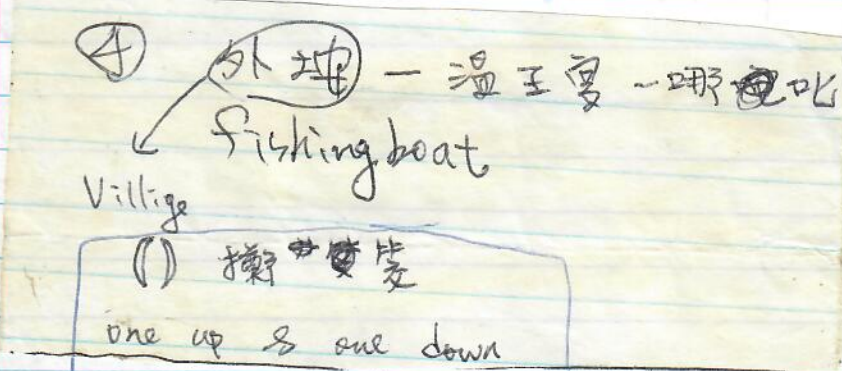 ④ 外埤 — 溫王宮 — 哪吒
fishing boat
Villige
() 擲筊
one up & one down